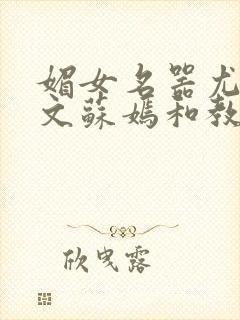 媚女名器尤
文蘇媽和教
欣曳露